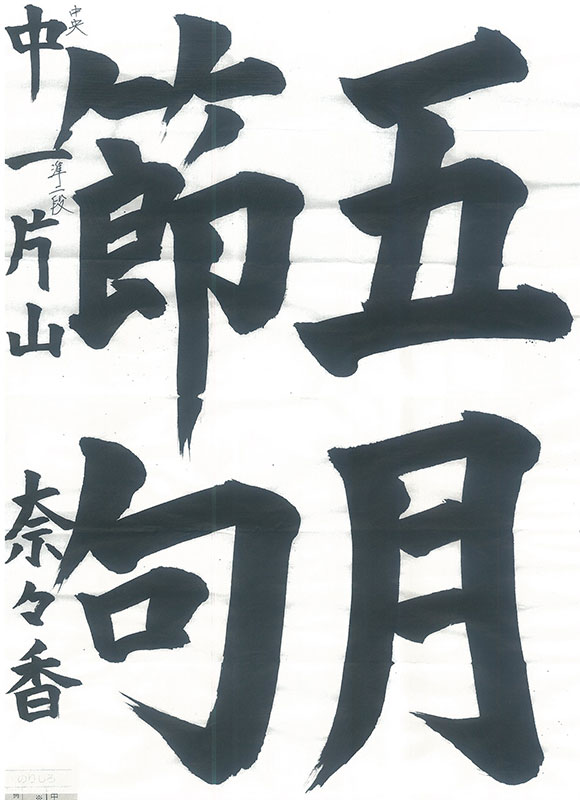 五月
節句
中央
準二段
中一片山 奈々香
のりしろ